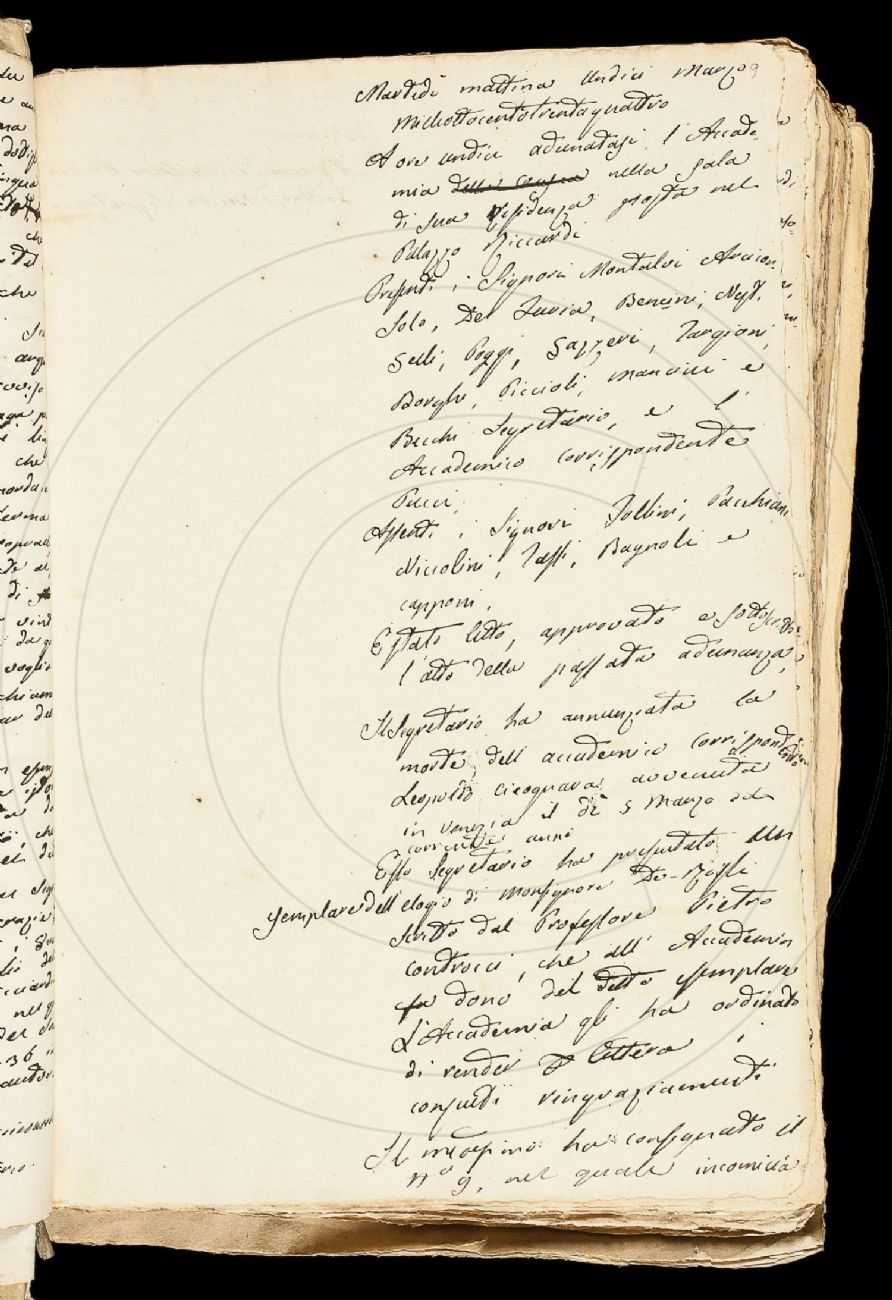 Martedì mattina Undici Marzo 9
Milleottocentotrentaquattro
A ore undici adunatasi l'Accade-
mia nella sala
di sua residenza posta nel
Palazzo Riccardi
Presenti i Signori Montalvi Arcicon.
Solo, Del Furia, Bencini, Nest.
Selli, Poggi, Gazzeri, Targioni,
Borghi, Piccioli, Mancini e
Becchi Segretario, e l'
Accademico corrispondente
Pucci.
Assenti i Signori Follini, Pacchiani
Niccolini, Tassi, Bagnoli e
capponi.
È stato letto, approvato e sottoscritto
l'atto della passata adunanza,
Il Segretario ha annunziata la
morte dell'accademico corrispondente
Leopoldo cicognara avvenuta
in venezia il dì 5 Marzo del
corrente anno
Esso Segretario ha presentato un
esemplare dell'elogio di Monsignore De-Rossi
scritto dal Professore Pietro
Contrucci, che all'Accademia
fa dono del detto esemplare
L'Accademia gli ha ordinato
di render lettera i
consueti ringraziamenti
Il medesimo ha consegnato il
n° 9, nel quale incomincia